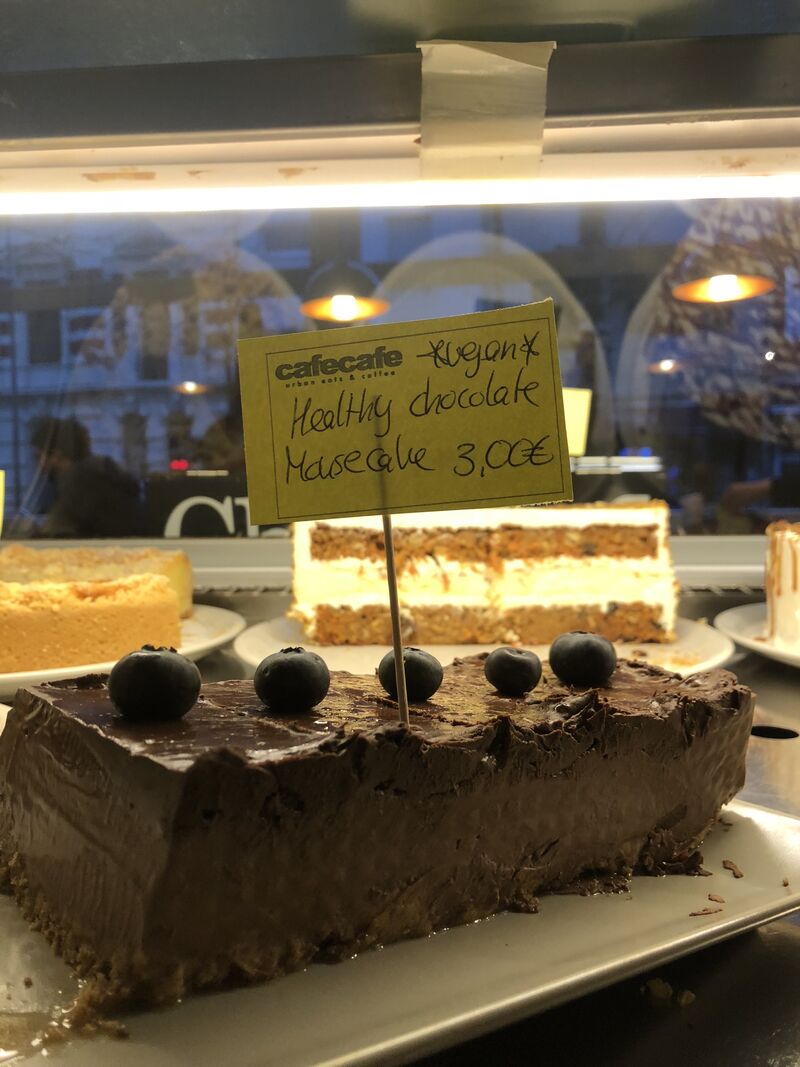 cafecafe *vegan*
urban eats & coffee
Healthy chocolate
Mousecake 3,00€